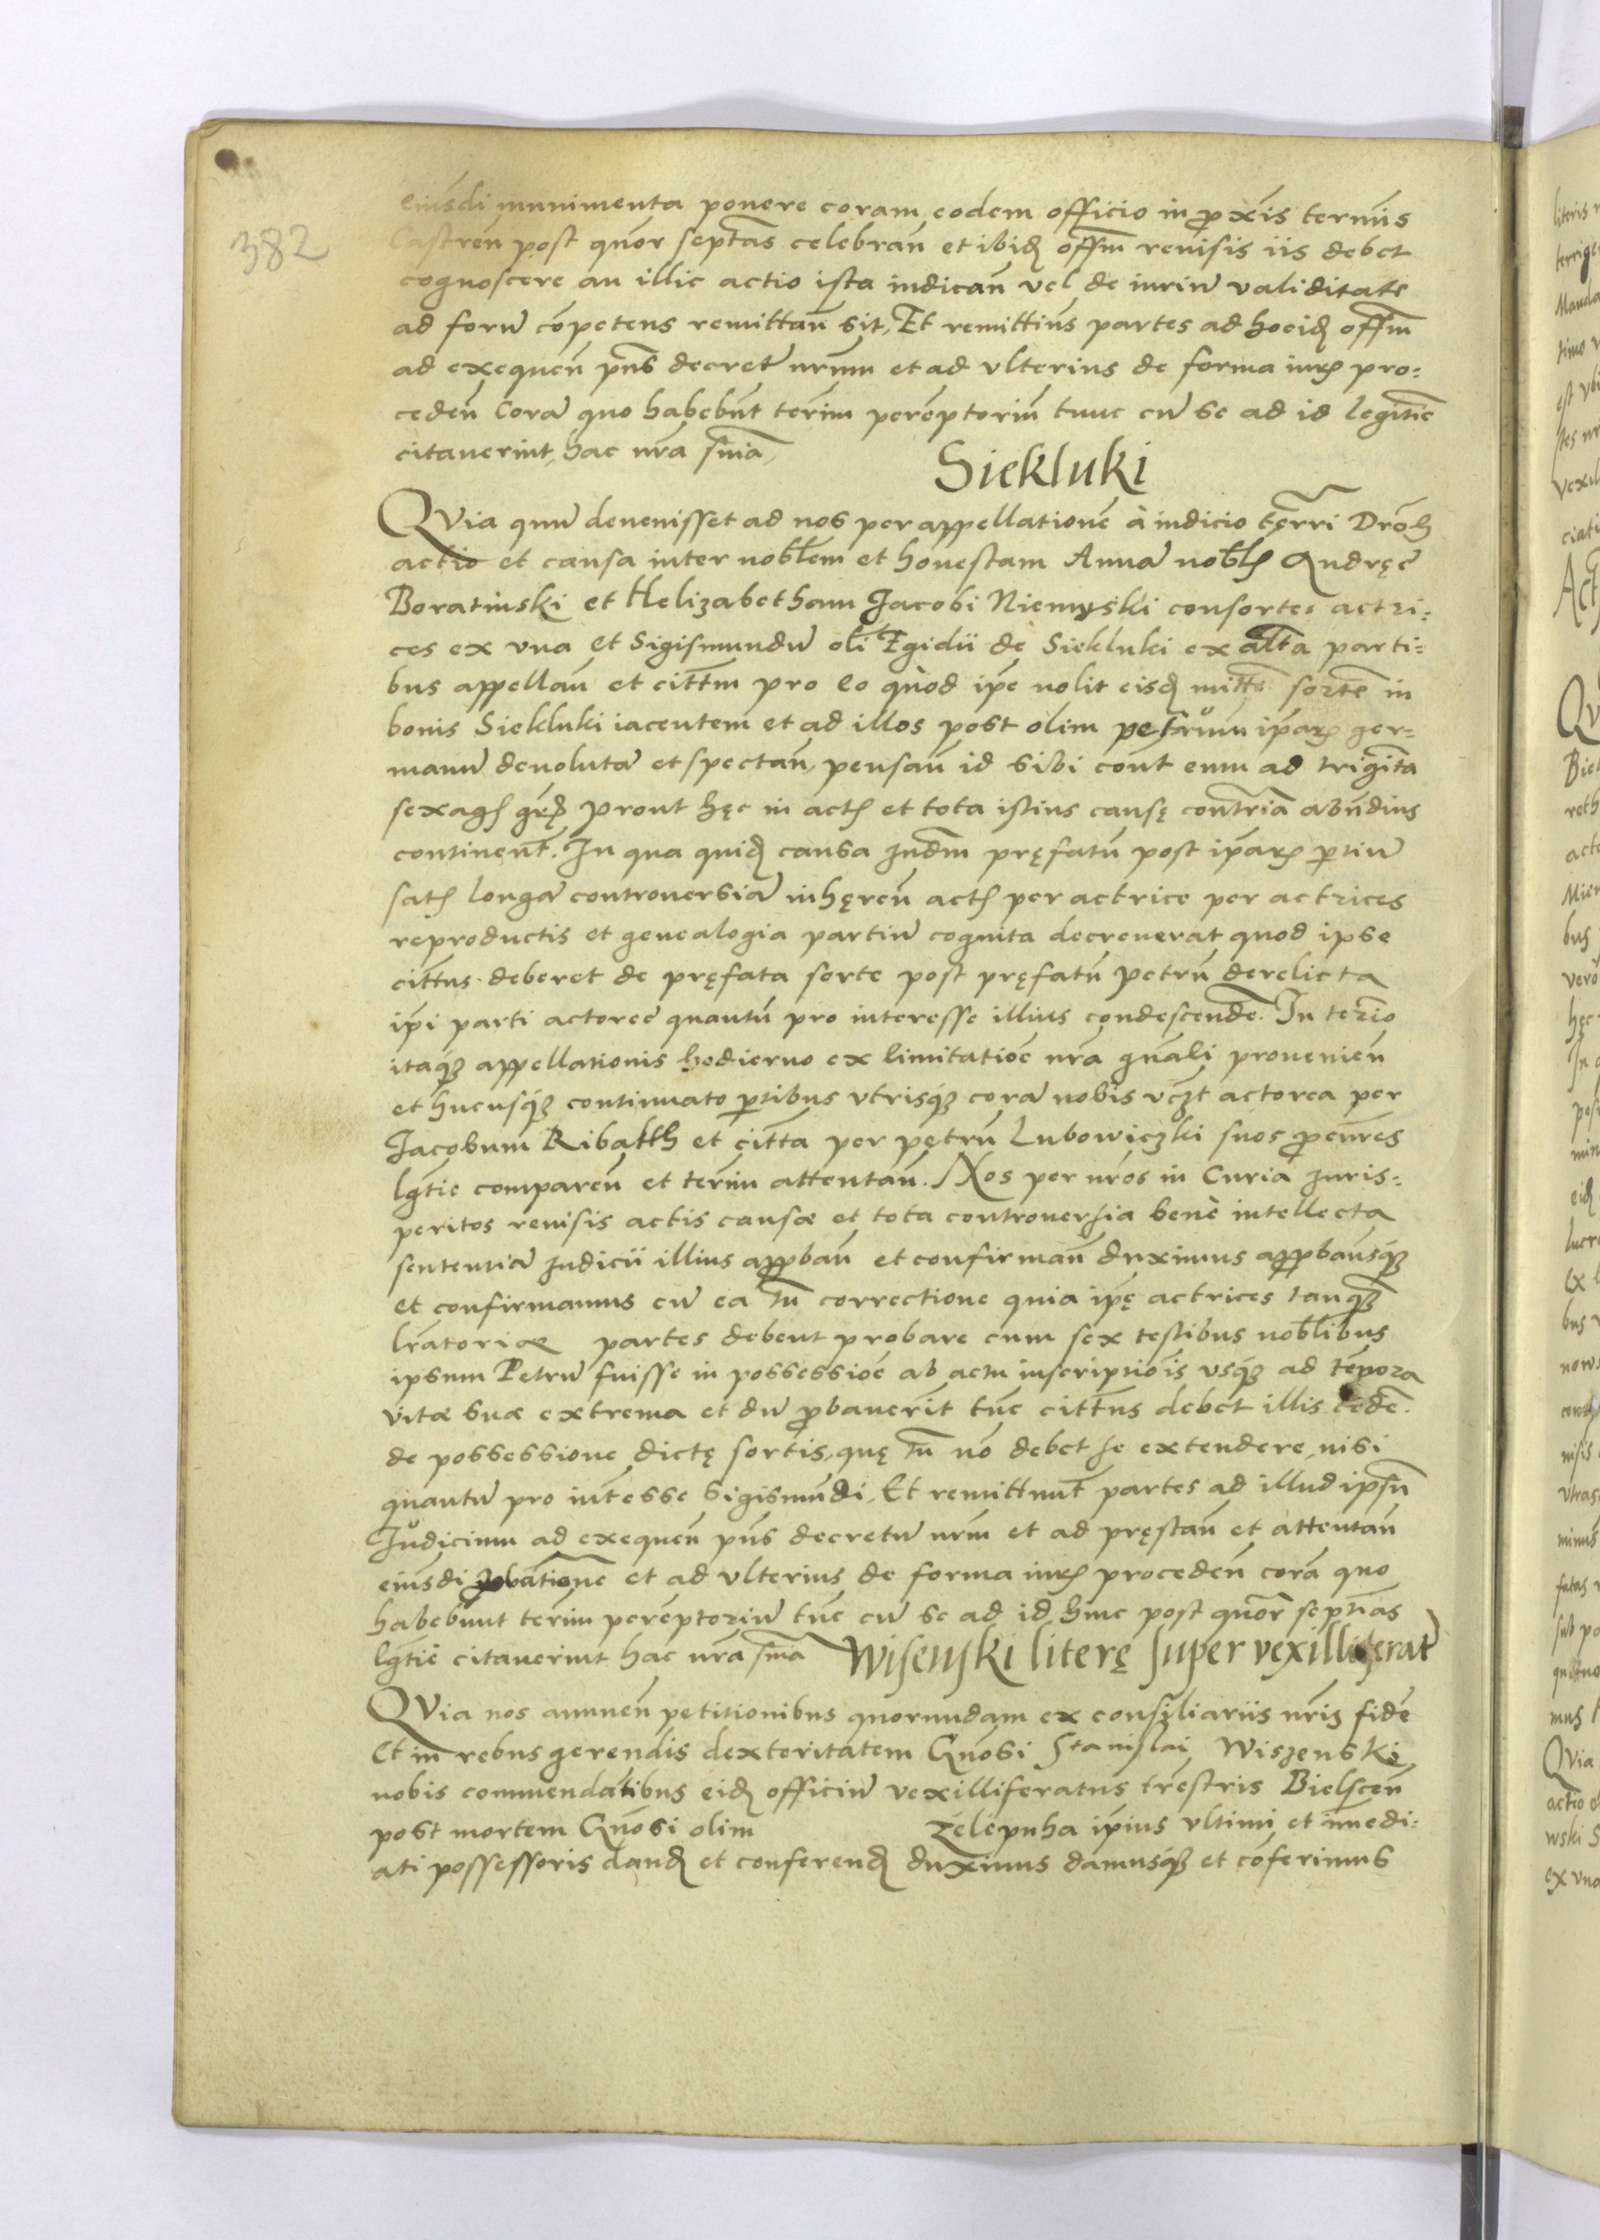 382
eiusdi munimenta ponere coram eodem officio in proxis termis
Castren post quor septas celebran et ibid offm reuisis iis debet
cognoscere an illic actio ista iudican vel de iuriu validitate
ad foru competens remittan sit, Et remittius partes ad hocid offm
ad exequen pns decret nrum et ad vlterius de forma iuris pro=
ceden Cora quo habebunt termi peremptoriu tunc cu se ad id legitie
citauerint, hac nra snia,
Siekluki
QVia quu deuenisset ad nos per appellatione à iudicio terri Droh
actio et causa inter noblem et honestam Anna noblis Andreę
Boratinski et Helizabetham Jacobi Niemyski consortes actri=
ces ex vna et Sigismundu oli Egidii de Siekluki ex alta parti=
bus appellan et cittm pro eo quòd ipe nolit eisd mitte sorte in
bonis Siekluki iacentem et ad illos post olim petruum ipar ger=
manu deuoluta et spectan, pensan id sibi cont eum ad triginta
sexags gr, prout hęc in actis et tota istius causę contria abundius
continent. In qua quid causa Judm pręfatu post ipar partiu
satis longa controuersia inhęren actis per actrice per actrices
reproductis et genealogia partiu cognita decreuerat quod ipse
cittus deberet de pręfata sorte post pręfatu petru derelicta
ipi parti actoree quantu pro interesse illius condescende. In termio
itaque appellationis hodierno ex limitatioe nra gnali prouenien
et hucusque continuato partibus vtrisque cora nobis vczt actorea per
Jacobum Ribatth et citta per petru Lubowiczki suos procures
lgtie comparen et termi attentan. Nos per nros in Curia Juris=
peritos reuisis actis causæ et tota controuersia benè intellecta
sententia Judicii illius approban et confirman duximus approbansque
et confirmamus cu ea tn correctione quia ipę actrices tanque
lratoriæ partes debent probare cum sex testibus noblibus
ipsum Petru fuisse in possessioe ab actu inscriptiois vsque ad tepora
vitæ suæ extrema et du probauerit tuc cittus debet illis cede.
de possessione dictę sortis, quę tn no debet se extendere, nisi
quantu pro iuntesse Sigismudi, Et remittunt partes ad illud ipsu
Judicium ad exequen pns decretu nrm et ad pręstan et attentan
eiusdi probatione et ad vlterius de forma iuris proceden cora quo
habebunt termi peremptoriu tuc cu se ad id hinc post quor septnas
lgtie citauerint hac nra snia
Wisenski literę super vexilliferat
QVia nos annuen petitionibus quorundam ex consiliariis nris fide
Et in rebus gerendis dexteritatem Gnosi Stanislai Wiszenski
nobis commendatibus eid officiu vexilliferatus trestris Bielscen
post mortem Gnosi olim Zelepuha ipius vltimi et immedi=
ati possessoris dand et conferend duximus damusque et coferimus